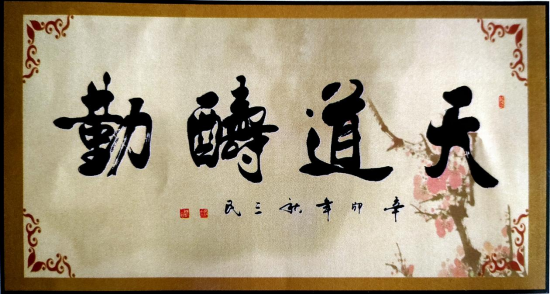 天道酬勤
辛卯年秋三民